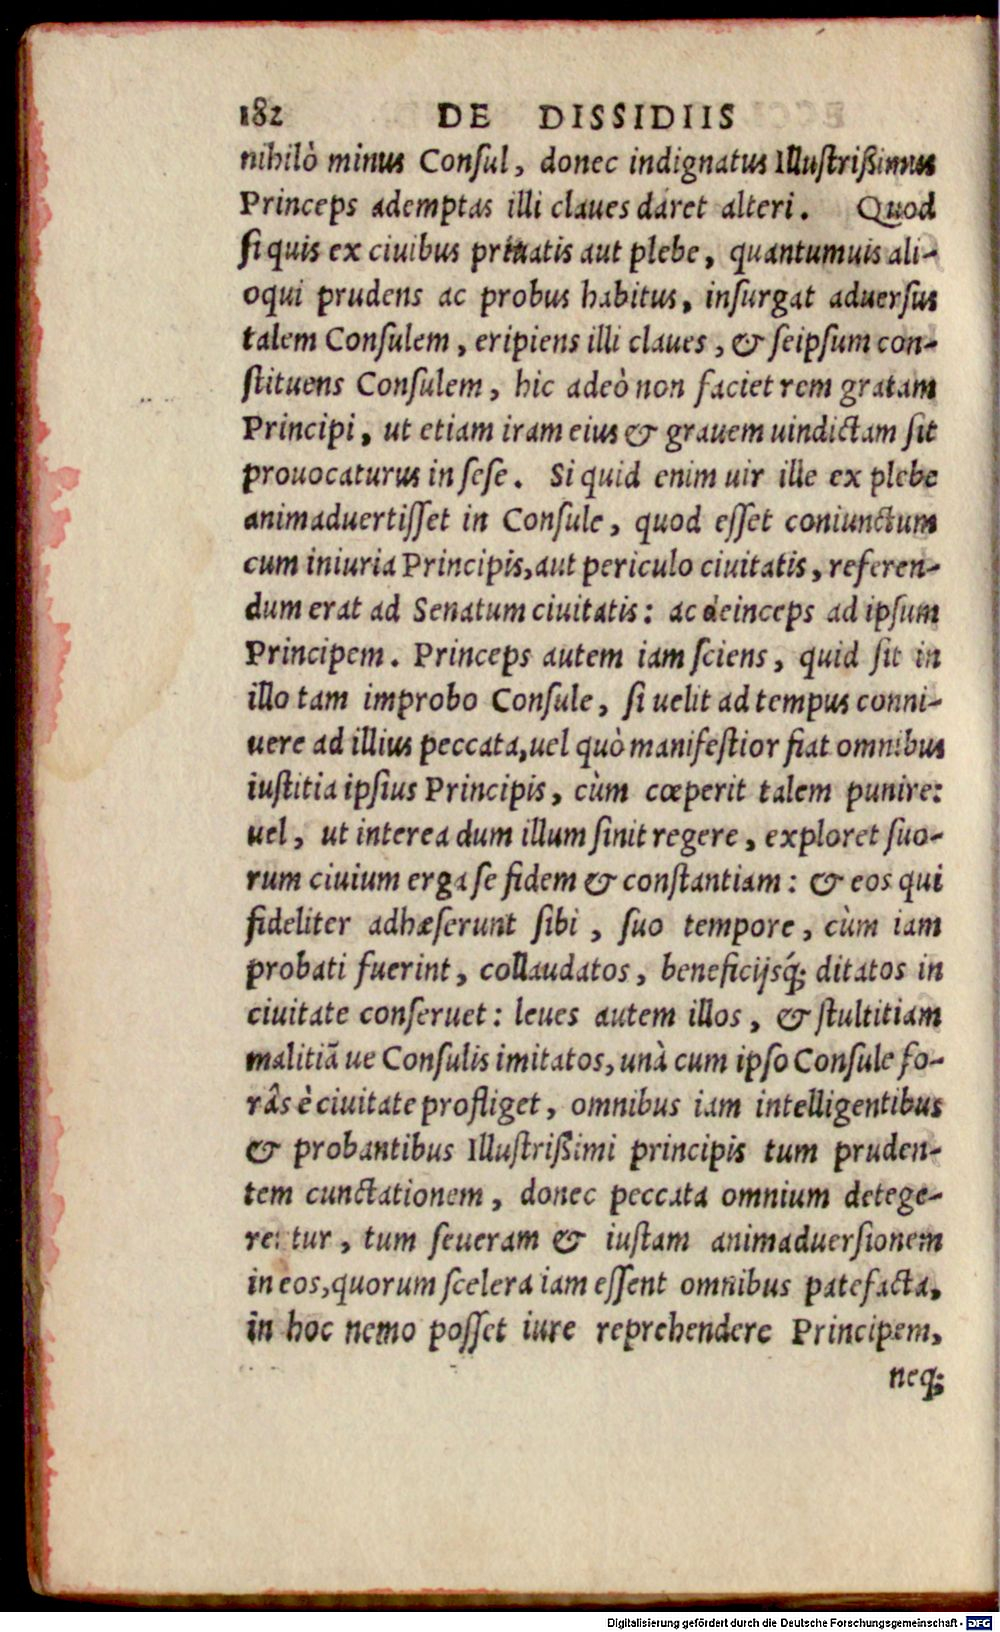 182 DE DISSIDIIS
nihilò minus Conſul, donec indignatus Illuſtriſsimus
Princeps ademptas illi claues daret alteri. Quod
ſi quis ex ciuibus priuatis aut plebe, quantumuis ali-
oqui prudens ac probus habitus, inſurgat aduerſus
talem Conſulem, eripiens illi claues, & ſeipſum con-
ſtituens Conſulem, hic adeò non faciet rem gratam
Principi, ut etiam iram eius & grauem uindictam ſit
prouocaturus in ſeſe. Si quid enim uir ille ex plebe
animaduertiſſet in Conſule, quod eſſet coniunctum
cum iniuria Principis, aut periculo ciuitatis, referen-
dum erat ad Senatum ciuitatis: ac deinceps ad ipſum
Principem. Princeps autem iam ſciens, quid ſit in
illo tam improbo Conſule, ſi uelit ad tempus conni-
uere ad illius peccata, uel quò manifeſtior fiat omnibus
iuſtitia ipſius Principis, cùm cœperit talem punire:
uel, ut interea dum illum ſinit regere, exploret ſuo-
rum ciuium erga ſe fidem & conſtantiam: & eos qui
fideliter adhæſerunt ſibi, ſuo tempore, cùm iam
probati fuerint, collaudatos, beneficijsq́; ditatos in
ciuitate conſeruet: leues autem illos, & ſtultitiam
malitiã ue Conſulis imitatos, unà cum ipſo Conſule fo-
râs è ciuitate profliget, omnibus iam intelligentibus
& probantibus Illuſtriſsimi principis tum pruden-
tem cunctationem, donec peccata omnium detege-
rentur, tum ſeueram & iuſtam animaduerſionem
in eos, quorum ſcelera iam eſſent omnibus patefacta,
in hoc nemo poſſet iure reprehendere Principem,
neq;
Digitalisierung gefördert durch die Deutsche Forschungsgemeinschaft - DFG